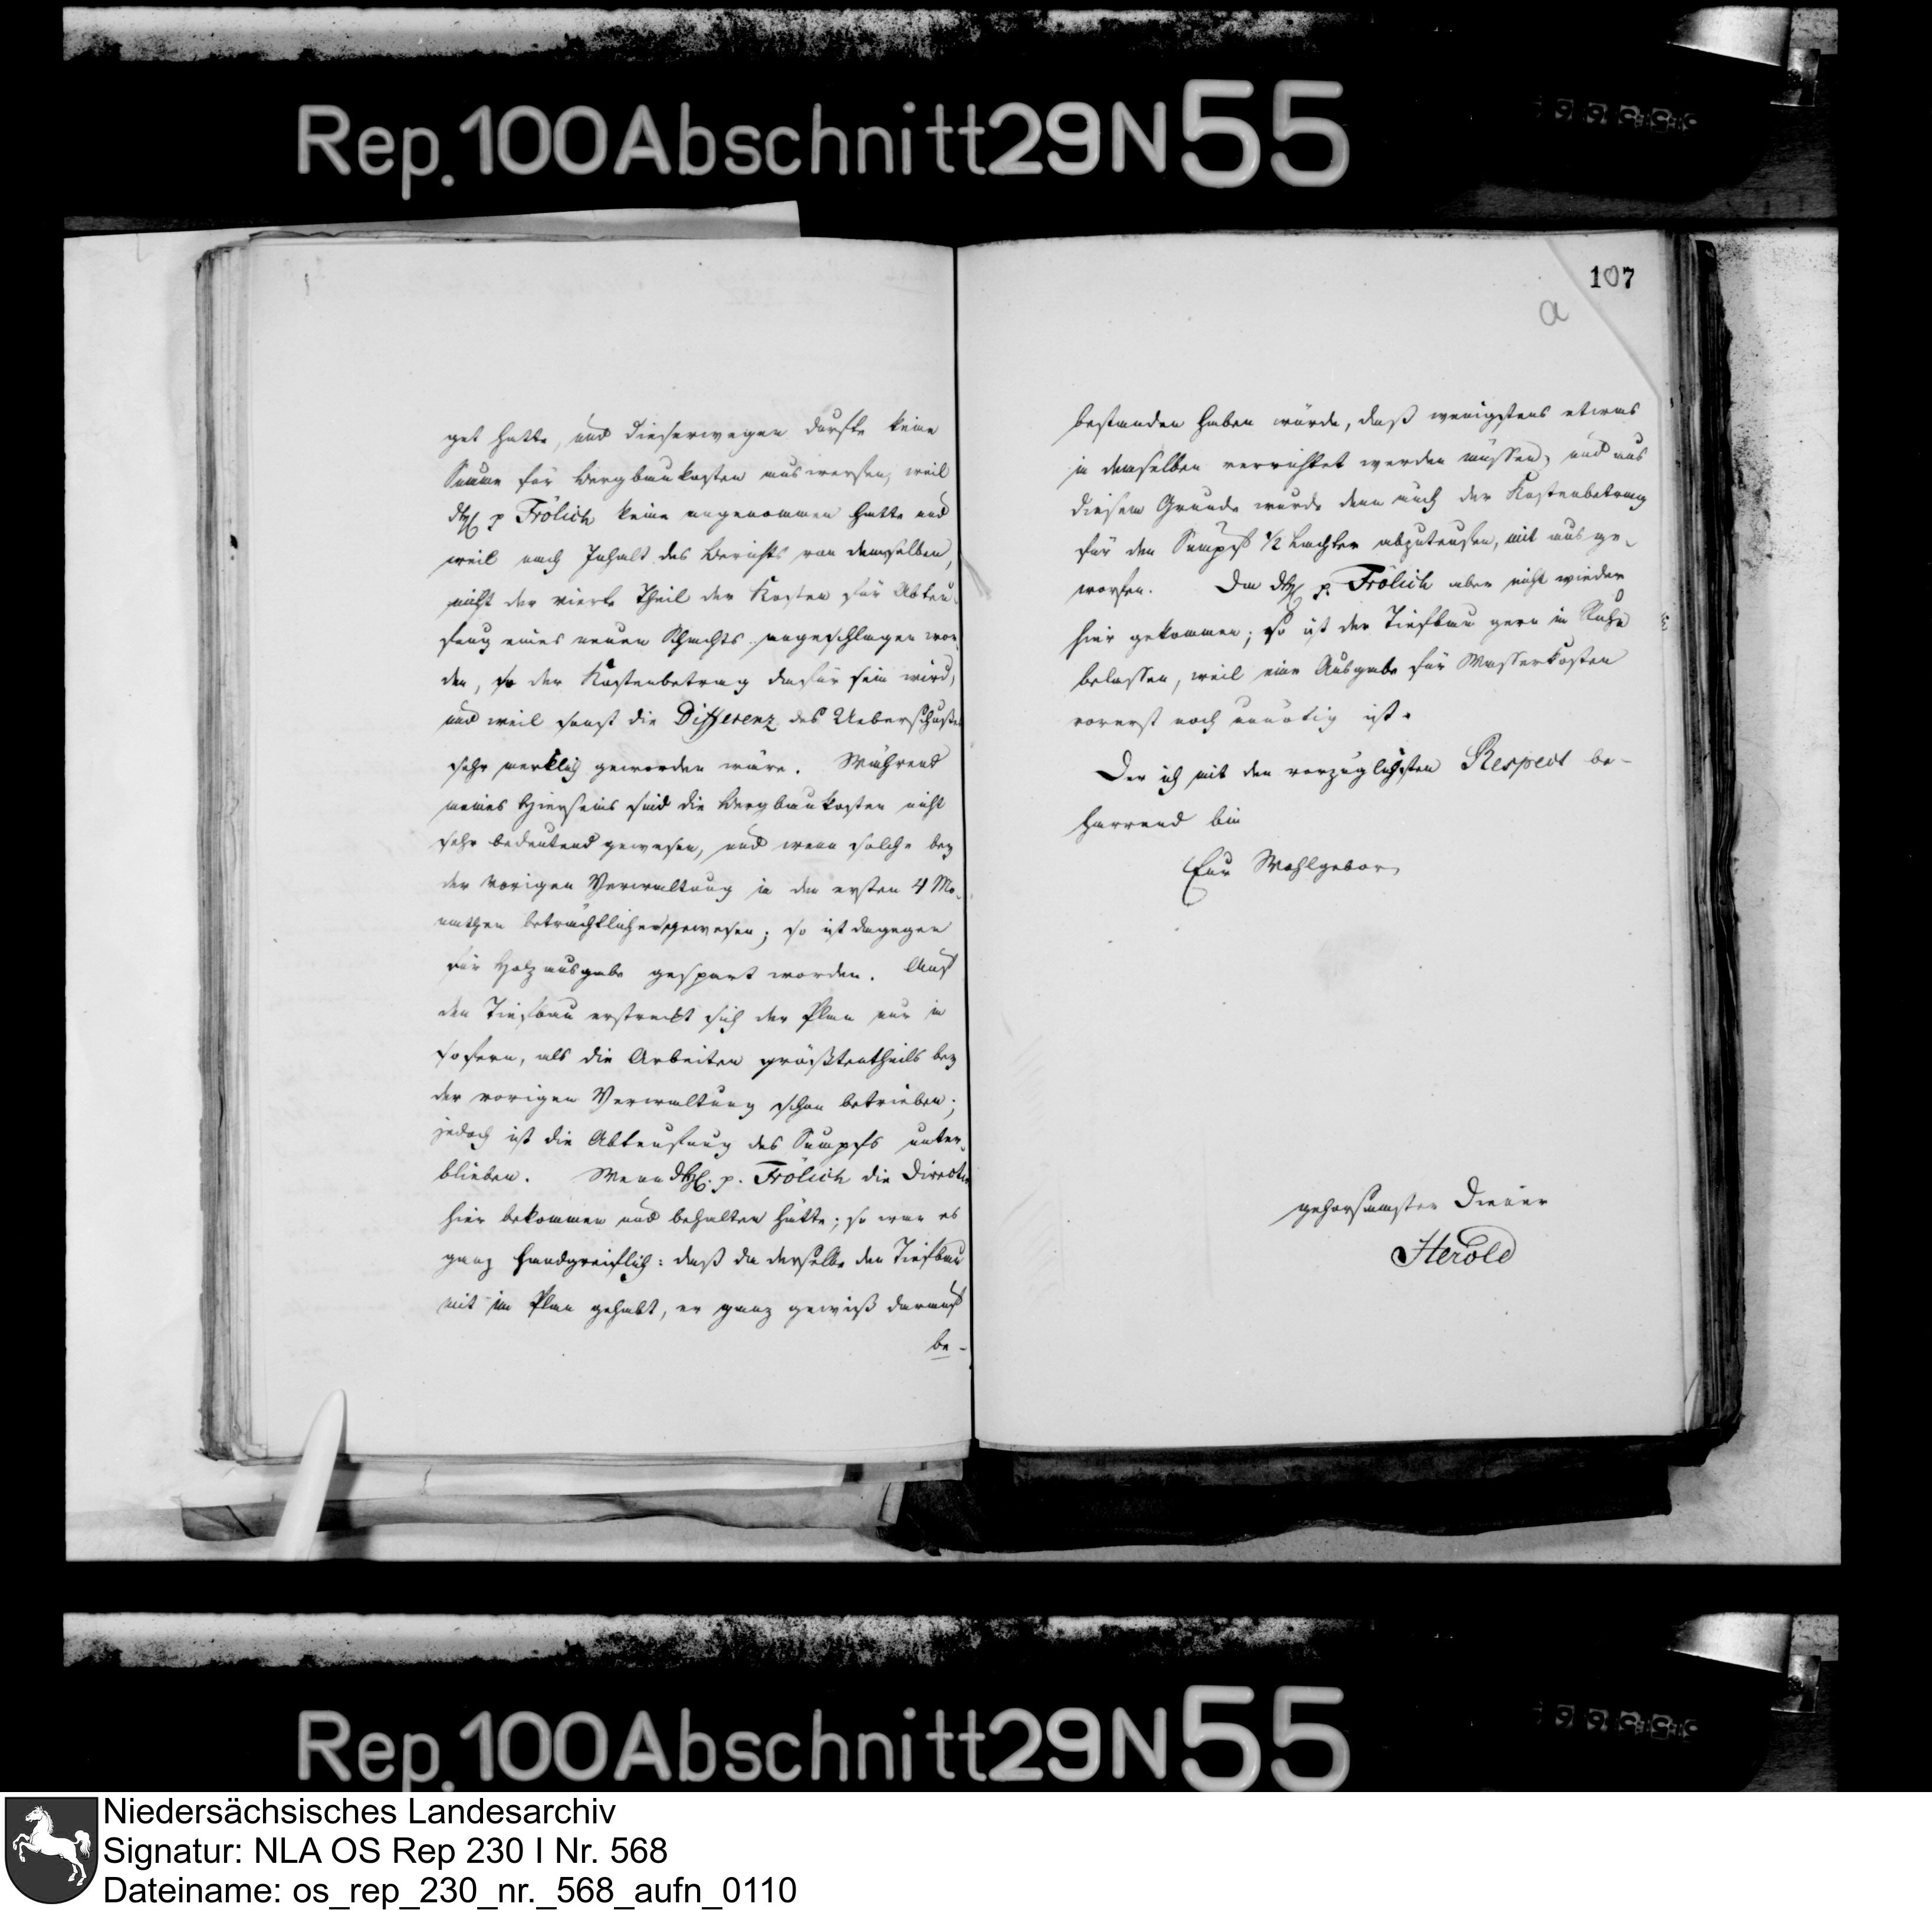 Rep. 100 Abschnitt 29 N 55
107
a
get hatte, und dieserwegen durfte keine
Summe für Bergbaukosten auswerfen, weil
p Frölich keine angenommen hatte und
weil nach Inhalt des Berichts von demselben,
nicht der vierte Theil der Kosten für Abteu-
fung eines neuen Schachts angeschlagen wor-
den, so der Kostenbetrag dafür sein wird,
und weil sonst die Differenz des Ueberschußes
sehr merklich geworden wäre. Während
meines Hierseins sind die Bergbaukosten nicht
sehr bedeutend gewesen, und wenn solche bey
der vorigen Verwaltung in den ersten 4 Mo-
nathen beträchtlicher gewesen; so ist dagegen
für Holzausgabe gespart worden. Auf
den Tiefbau erstreckt sich der Plan nur in
sofern, als die Arbeiten größtentheils bey
der vorigen Verwaltung schon betrieben;
jedoch ist die Abteufung des Sumpfs unter-
blieben. Wenn p. Frölich die Direction
hier bekommen und behalten hätte; so war es
ganz handgreiflich: daß da derselbe den Tiefbau
mit im Plan gehabt, er ganz gewiß darauf
be-
bestanden haben würde, daß wenigstens etwas
in demselben verrichtet werden müssen, und aus
diesem Grunde wurde denn auch der Kostenbetrag
für den Sumpf 1/2 Lachter abzuteufen, mit ausge-
worfen. Da p. Frölich aber nicht wieder
hier gekommen; so ist der Tiefbau gern in Ruhe
belassen, weil eine Ausgabe für Wasserkosten
vorerst noch unnötig ist.
Der ich mit den vorzüglichsten Respect be-
harrend bin
Eur Wohlgebor
gehorsamster Diener
Herold
Rep. 100 Abschnitt 29 N 55
Niedersächsisches Landesarchiv
Signatur: NLA OS Rep 230 I Nr. 568
Dateiname: os_rep_230_nr._568_aufn_0110